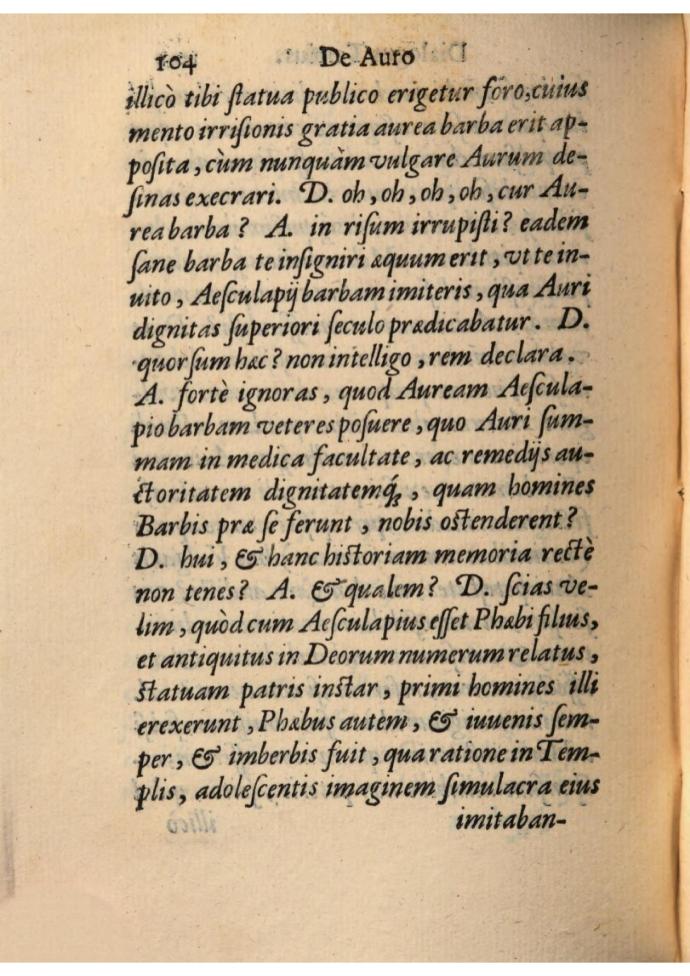 104 De Auro
illicò tibi ſtatua publico erigetur foro, cuius
mento irriſionis gratia aurea barba erit ap-
poſita, cùm nunquàm vulgare Aurum de-
ſinas execrari. D. oh, oh, oh, oh, cur Au-
rea barba? A. in riſum irrupiſti? eadem
ſane barba te inſigniri æquum erit, vt te in-
uito, Aeſculapij barbam imiteris, qua Auri
dignitas ſuperiori ſeculo prædicabatur. D.
quorſum hæc? non intelligo, rem declara.
A. fortè ignoras, quod Auream Aeſcula-
pio barbam veteres poſuere, quo Auri ſum-
mam in medica facultate, ac remedijs au-
ctoritatem dignitatemq́;, quam homines
Barbis præ ſe ferunt, nobis oſtenderent?
D. hui, & hanc hiſtoriam memoria rectè
non tenes? A. & qualem? D. ſcias ve-
lim, quòd cum Aeſculapius eſſet Phæbi filius,
et antiquitus in Deorum numerum relatus,
ſtatuam patris inſtar, primi homines illi
erexerunt, Phæbus autem, & iuuenis ſem-
per, & imberbis fuit, qua ratione in Tem-
plis, adoleſcentis imaginem ſimulacra eius
imitaban-